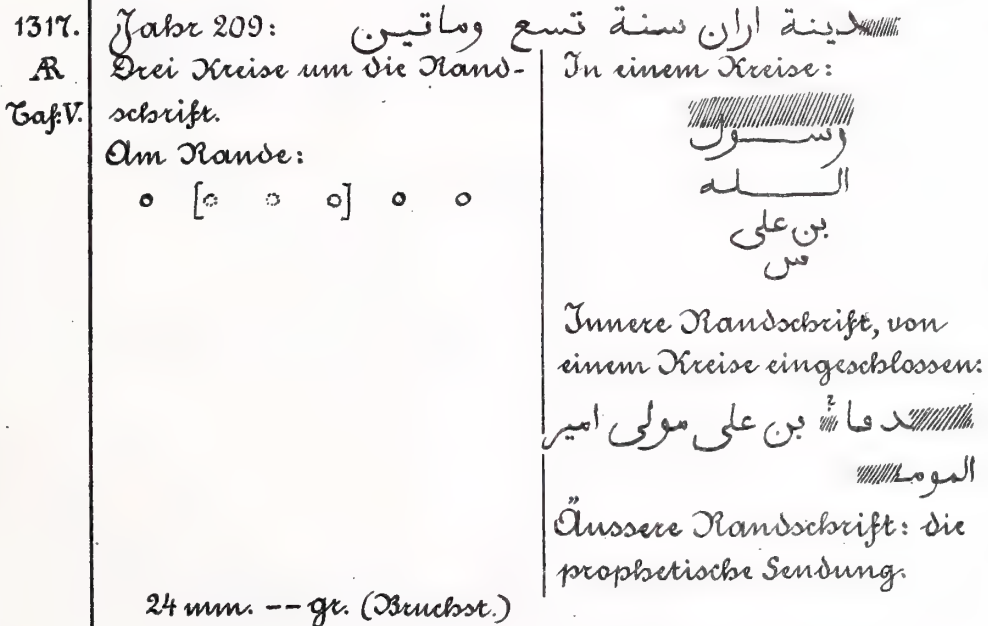 1317. Jahr 209: دينة اران سنة تسع وماتين
AR
Taf. V.
Drei Kreise um die Rand-
schrift.
Am Rande:
o [o o o] o o
24 mm. -- gr. (Bruchst.)
In einem Kreise:
رسول
الله
بن على
س
Innere Randschrift, von
einem Kreise eingeschlossen:
بن على مولى امير
الموم
Äussere Randschrift: die
prophetische Sendung.